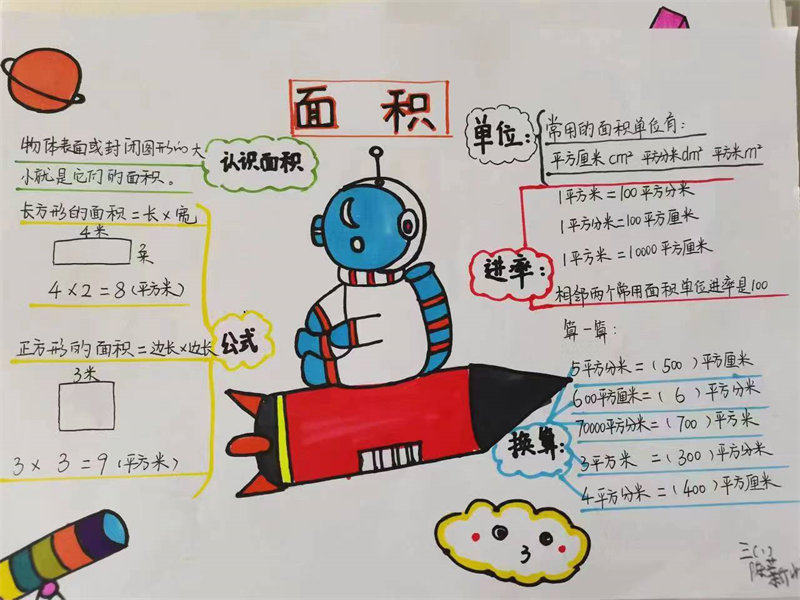 面 积
认识面积
物体表面或封闭图形的大
小就是它们的面积。
长方形的面积=长×宽
4米
2米
4×2=8(平方米)
公式
正方形的面积=边长×边长
3米
3×3=9(平方米)
单位:
常用的面积单位有:
平方厘米cm² 平方分米dm² 平方米m²
进率:
1平方米=100平方分米
1平方分米=100平方厘米
1平方米=10000平方厘米
相邻两个常用面积单位进率是100
算一算:
换算:
5平方分米=(500)平方厘米
600平方厘米=(6)平方分米
70000平方分米=(700)平方米
3平方米=(300)平方分米
4平方分米=(400)平方厘米
三(1)